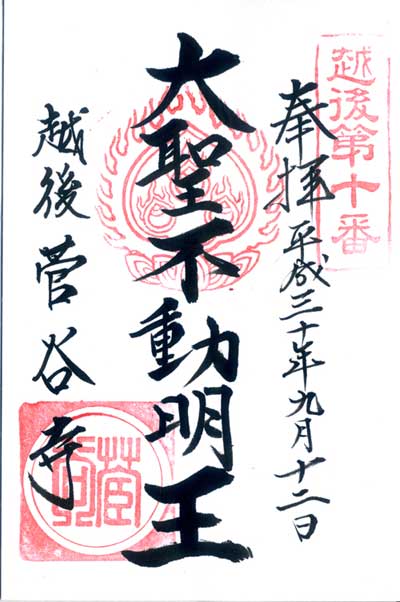 越後第十番
奉拝 平成三十年九月十二日
大聖不動明王
越後 菅谷寺